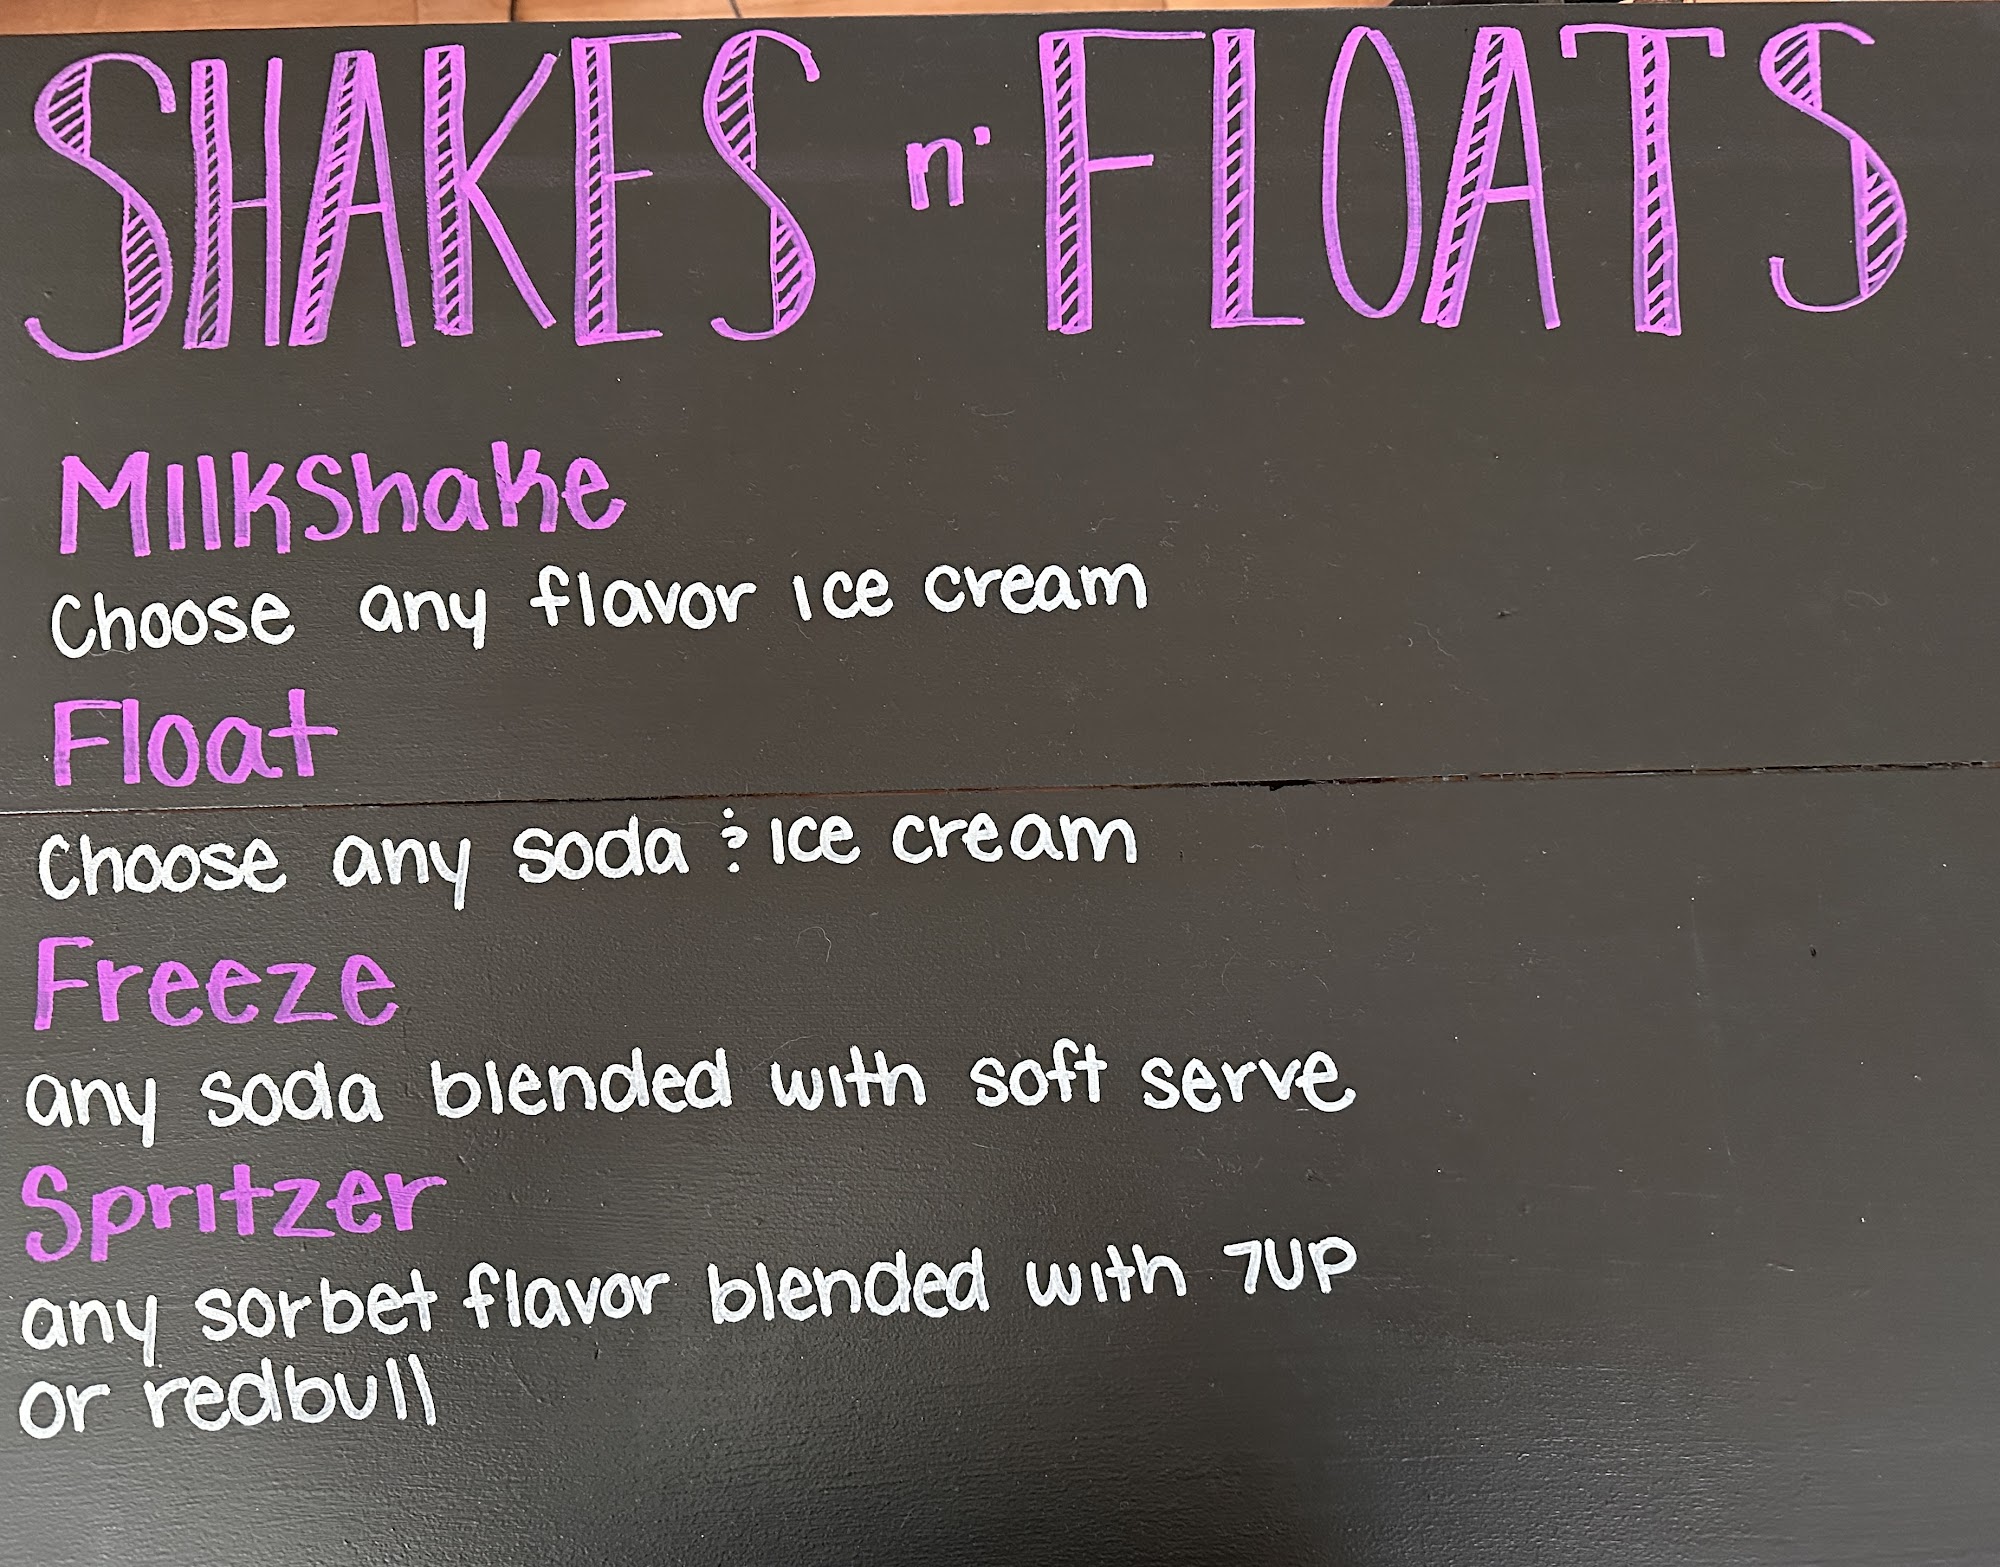 SHAKES n' FLOATS
Milkshake
Choose any flavor ice cream
Float
Choose any soda & ice cream
Freeze
any soda blended with soft serve
Spritzer
any sorbet flavor blended with 7UP
or redbull